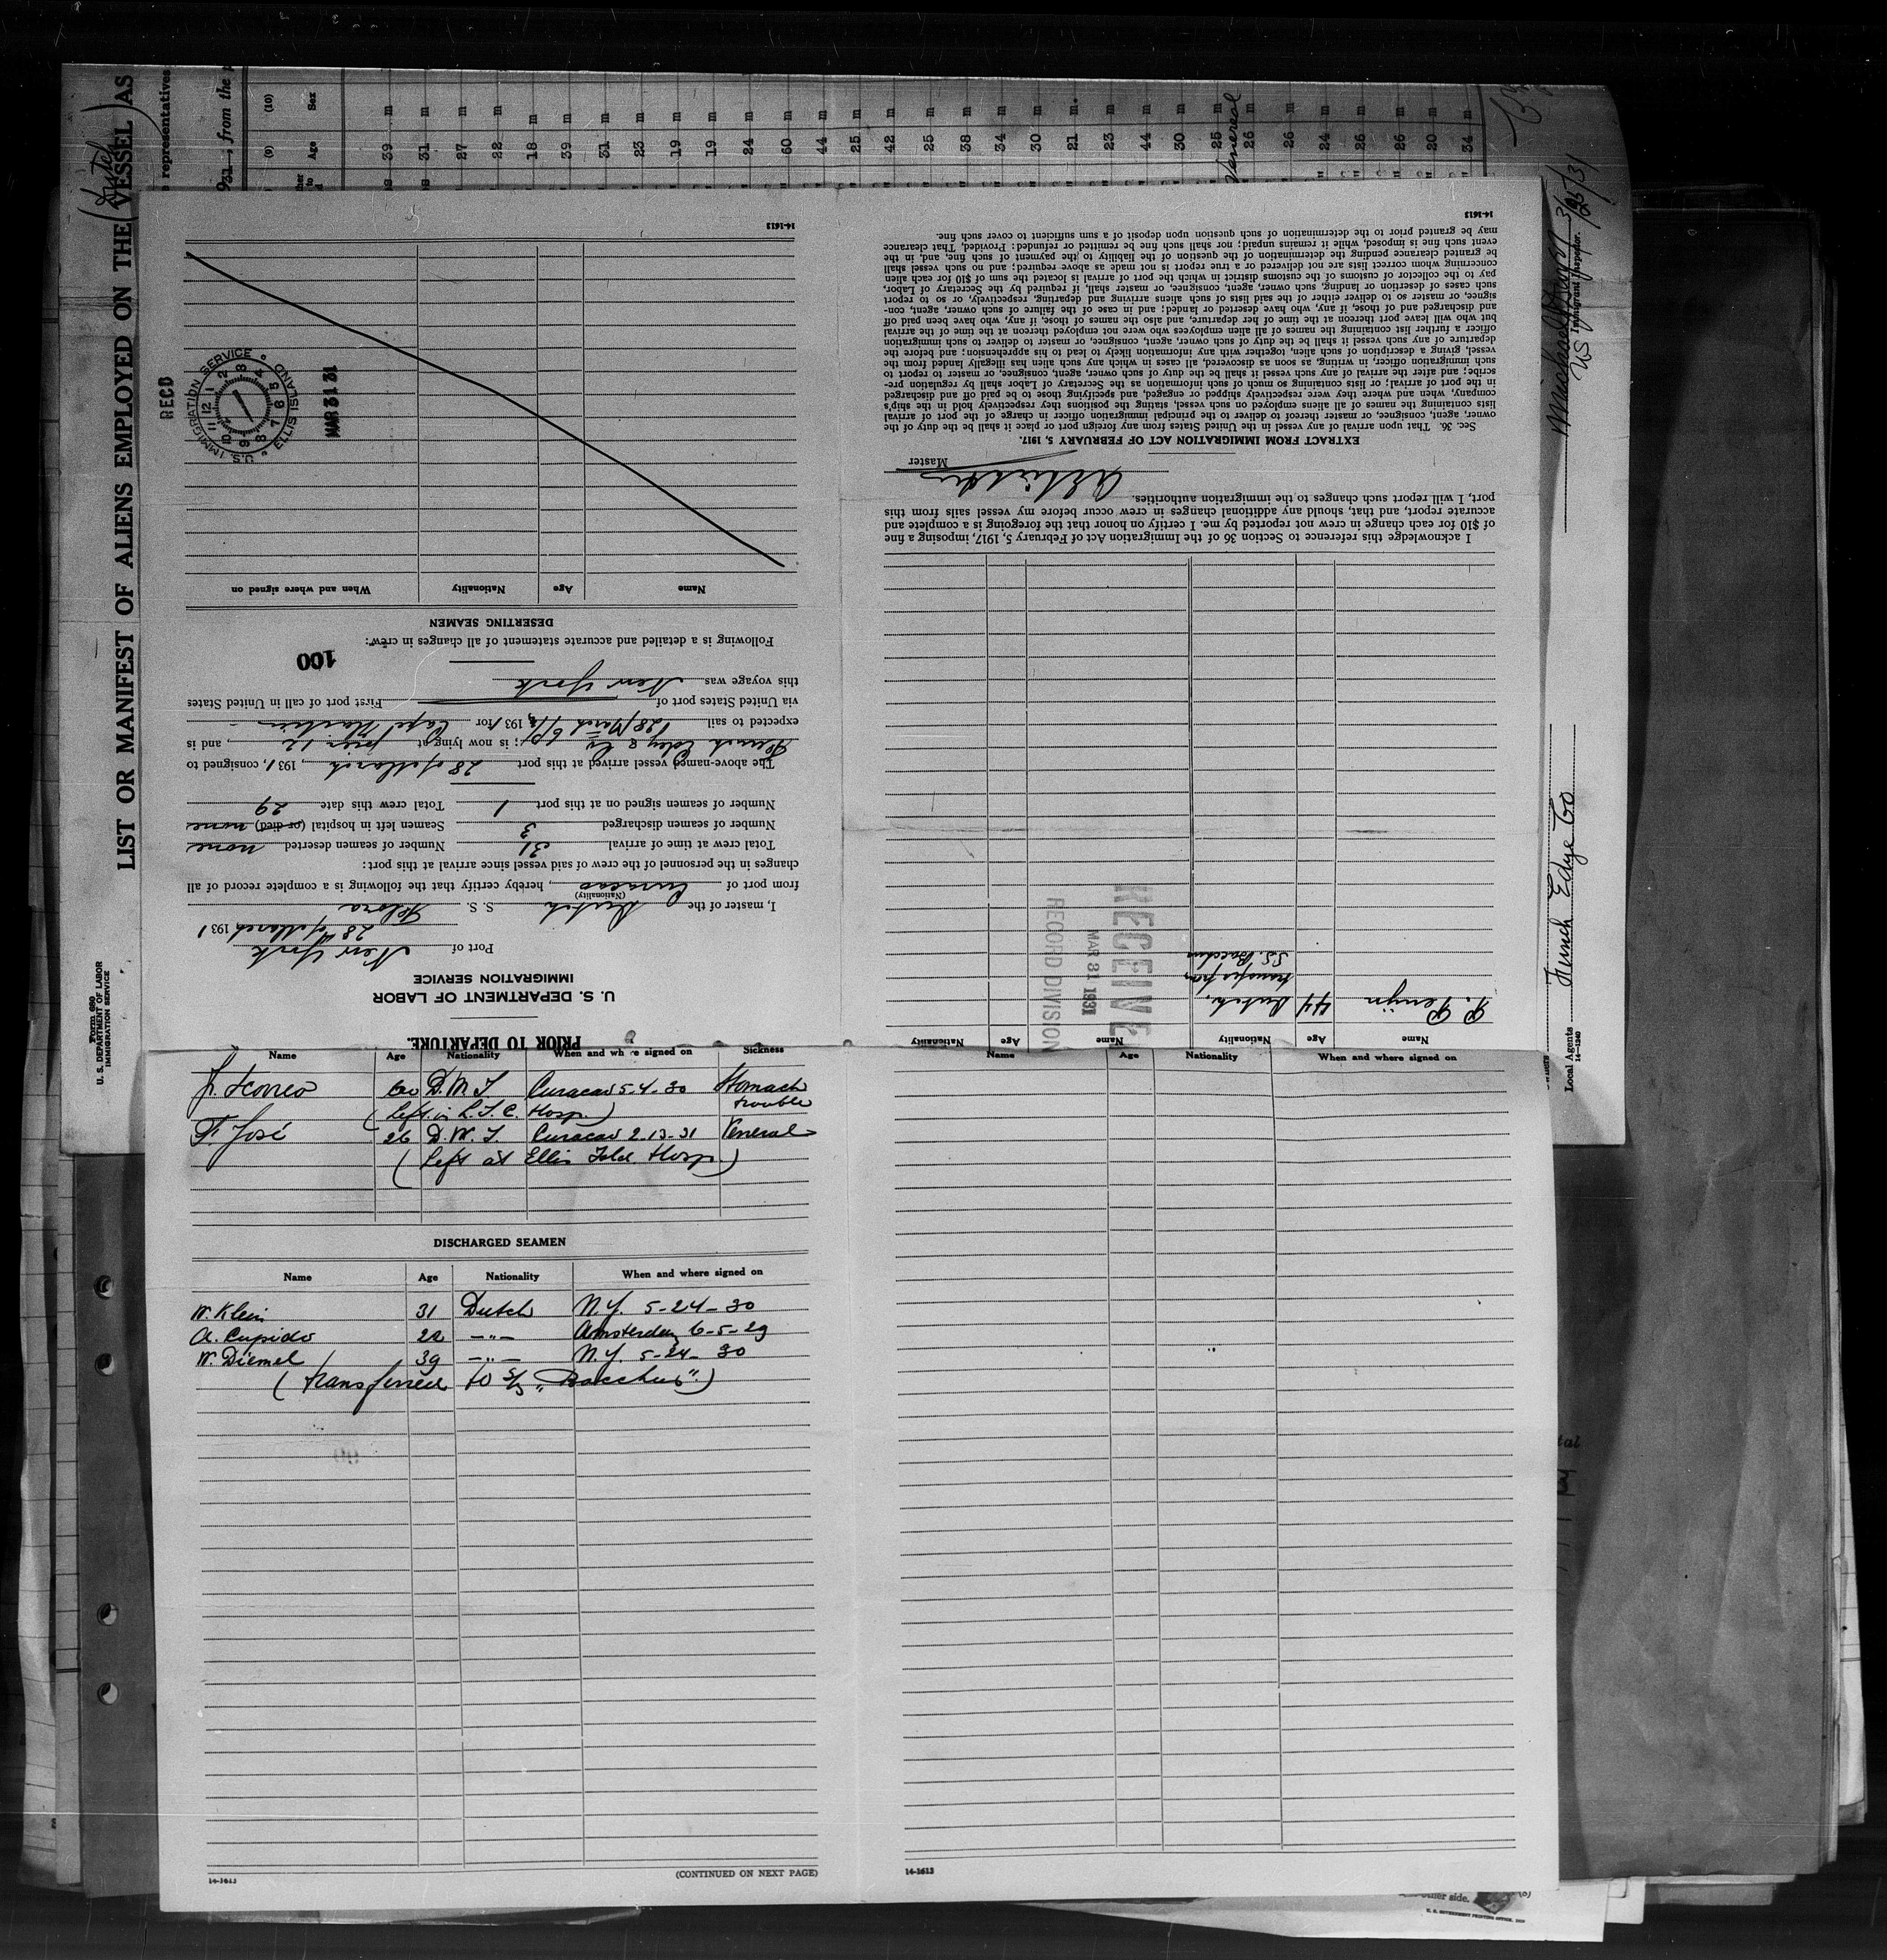 LIST OR MANIFEST OF ALIENS EMPLOYED ON THE VESSEL AS
(Dutch)
representatives
from the
(10)
Sex
(9)
Age
39 m
31 m
27 m
22 m
18 m
39 m
31 m
23 m
19 m
19 m
24 m
60 m
44 m
25 m
42 m
25 m
38 m
34 m
30 m
21 m
23 m
44 m
30 m
25 m
Venereal
26 m
26 m
24 m
26 m
26 m
20 m
34 m
Form 680
U. S. DEPARTMENT OF LABOR
IMMIGRATION SERVICE
3/25/31
US Immigrant Inspector.
Funch Edye & Co
Local Agents
14-1240
PRIOR TO DEPARTURE.
U. S. DEPARTMENT OF LABOR
IMMIGRATION SERVICE
Port of New York
28 of March, 1931
I, master of the Dutch S. S. Flora
(Nationality)
from port of Curacao, hereby certify that the following is a complete record of all
changes in the personnel of the crew of said vessel since arrival at this port:
Total crew at time of arrival 31 Number of seamen deserted none
Number of seamen discharged 3 Seamen left in hospital (or died) none
Number of seamen signed on at this port 1 Total crew this date 29
The above-named vessel arrived at this port 28 of March, 1931, consigned to
Funch Edye & Co; is now lying at pier 12, and is
expected to sail 28 March 6 P.M., 1931 for Cape Haitien
via United States port of First port of call in United States
this voyage was New York
100
Following is a detailed and accurate statement of all changes in crew:
DESERTING SEAMEN
Name Age Nationality When and where signed on
RECD
U.S. IMMIGRATION SERVICE
ELLIS ISLAND
MAR 31 31
14-1613
Name Age Nationality Name Age Nationality
P. Penijn 44 Dutch,
transfer from
S.S. Bacchus
RECEIVED
MAR 31 1931
RECORD DIVISION
I acknowledge this reference to Section 36 of the Immigration Act of February 5, 1917, imposing a fine
of $10 for each change in crew not reported by me. I certify on honor that the foregoing is a complete and
accurate report, and that, should any additional changes in crew occur before my vessel sails from this
port, I will report such changes to the immigration authorities.
Master
EXTRACT FROM IMMIGRATION ACT OF FEBRUARY 5, 1917.
Sec. 36. That upon arrival of any vessel in the United States from any foreign port or place it shall be the duty of the
owner, agent, consignee, or master thereof to deliver to the principal immigration officer in charge of the port of arrival
lists containing the names of all aliens employed on such vessel, stating the positions they respectively hold in the ship's
company, when and where they were respectively shipped or engaged, and specifying those to be paid off and discharged
in the port of arrival; or lists containing so much of such information as the Secretary of Labor shall by regulation pre-
scribe; and after the arrival of any such vessel it shall be the duty of such owner, agent, consignee, or master to report to
such immigration officer, in writing, as soon as discovered, all cases in which any such alien has illegally landed from the
vessel, giving a description of such alien, together with any information likely to lead to his apprehension; and before the
departure of any such vessel it shall be the duty of such owner, agent, consignee, or master to deliver to such immigration
officer a further list containing the names of all alien employees who were not employed thereon at the time of the arrival
but who will leave port thereon at the time of her departure, and also the names of those, if any, who have been paid off
and discharged and of those, if any, who have deserted or landed; and in case of the failure of such owner, agent, con-
signee, or master so to deliver either of the said lists of such aliens arriving and departing, respectively, or so to report
such cases of desertion or landing, such owner, agent, consignee, or master shall, if required by the Secretary of Labor,
pay to the collector of customs of the customs district in which the port of arrival is located the sum of $10 for each alien
concerning whom correct lists are not delivered or a true report is not made as above required; and no such vessel shall
be granted clearance pending the determination of the question of the liability to the payment of such fine, and, in the
event such fine is imposed, while it remains unpaid; nor shall such fine be remitted or refunded: Provided, That clearance
may be granted prior to the determination of such question upon deposit of a sum sufficient to cover such fine.
14-1613
Name Age Nationality When and where signed on Sickness
60 D.W.I. Curacao 5-4-30 Stomach trouble
(Left in L.I.C. Hosp.)
F. José 26 D.W.I. Curacao 2-13-31 Veneral
(Left at Ellis Isld. Hosp.)
DISCHARGED SEAMEN
Name Age Nationality When and where signed on
W. Klein 31 Dutch N.Y. 5-24-30
A. Cupido 22 —"— Amsterdam 6-5-29
W. Diemel 39 —"— N.Y. 5-24-30
(transferred to S/S "Bacchus")
14-1613
(CONTINUED ON NEXT PAGE)
Name Age Nationality When and where signed on
14-1613
other side.
U. S. GOVERNMENT PRINTING OFFICE